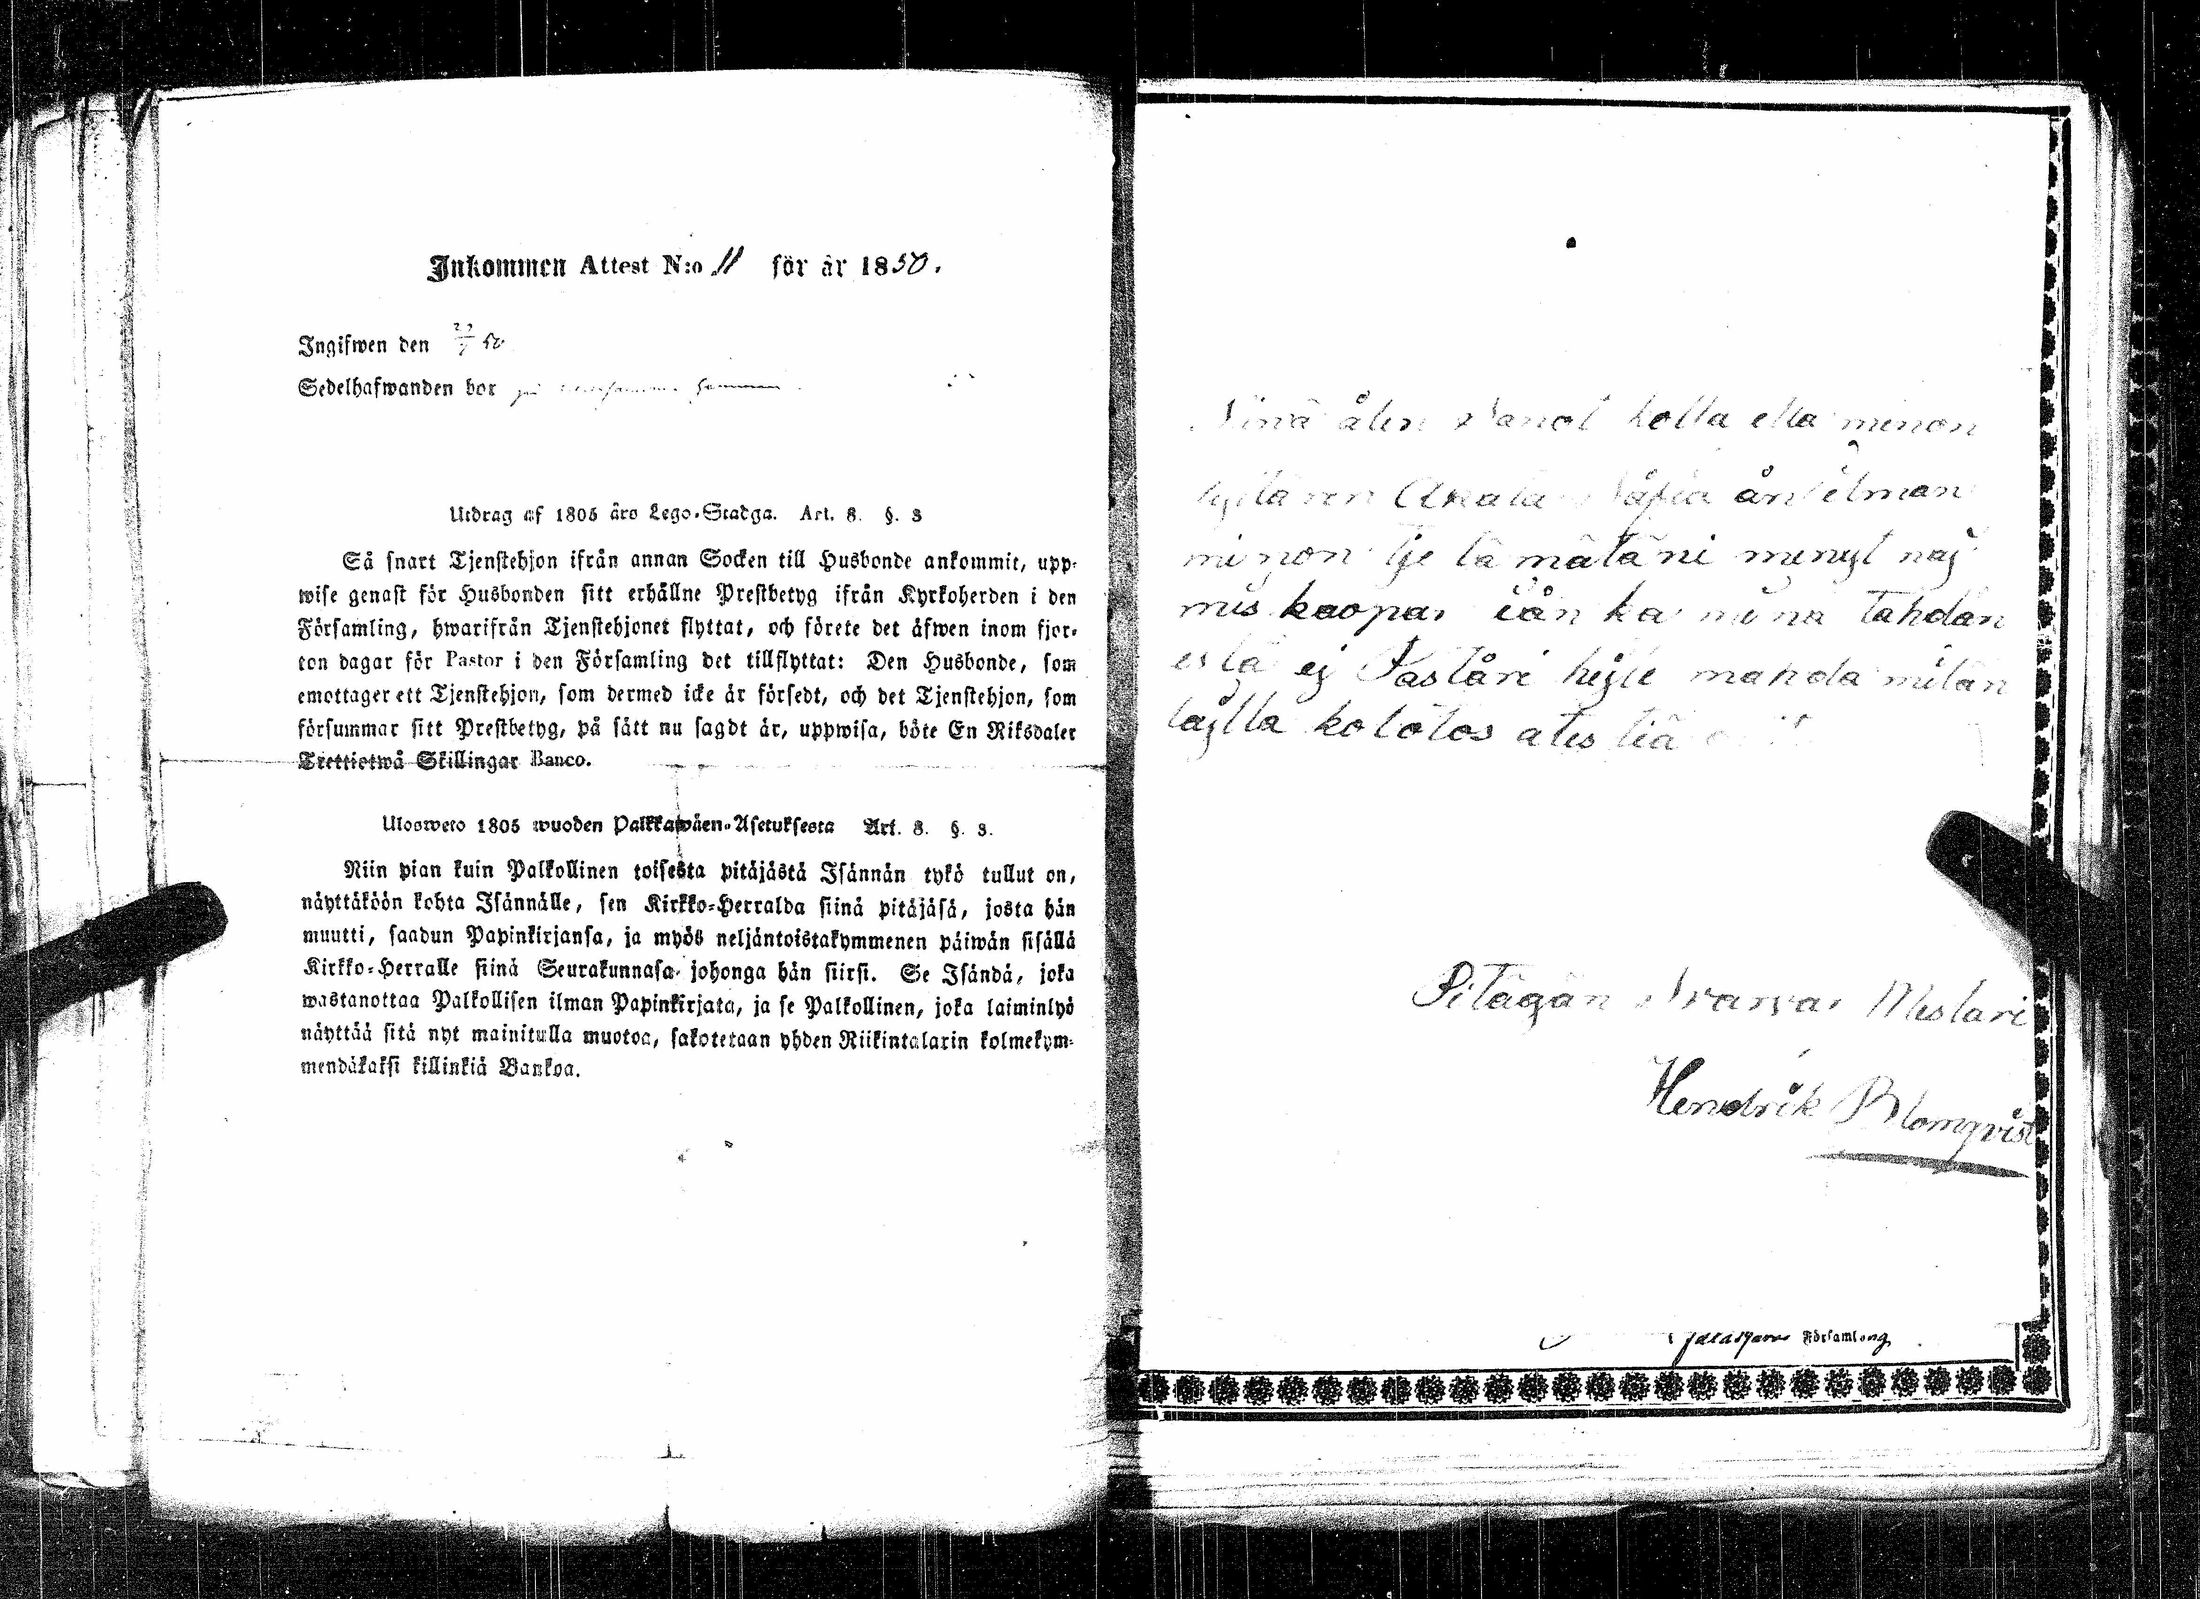 Inkommen Attest N:o 11 för år 1850.
Ingifwen den 29/7 50
Sedelhafwanden bor på
Utdrag af 1805 års Lego-Stadga. Art. 8. §. 3
Så snart Tjenstehjon ifrån annan Socken till Husbonde ankommit, upp-
wise genast för Husbonden sitt erhållne Prestbetyg ifrån Kyrkoherden i den
Församling, hwarifrån Tjenstehjonet flyttat, och förete det äfwen inom fjor-
ton dagar för Pastor i den Församling det tillflyttat: Den Husbonde, som
emottager ett Tjenstehjon, som dermed icke är försedt, och det Tjenstehjon, som
försummar sitt Prestbetyg, på sätt nu sagdt är, uppwisa, böte En Riksdaler
Trettiotwå Skillingar Banco.
Uloosweto 1805 wuoden Palkkawäen-Asetuksesta Art. 8. §. 3.
Niin pian kuin Palkollinen toisesta pitäjästä Isännän tykö tullut on,
näyttäköön kohta Isännälle, sen Kirkko-Herralda siinä pitäjäsä, josta hän
muutti, saadun Papinkirjansa, ja myös neljäntoistakymmenen päiwän sisällä
Kirkko-Herralle siinä Seurakunnasa johonga hän siirsi. Se Isändä, joka
wastanottaa Palkollisen ilman Papinkirjata, ja se Palkollinen, joka laiminlyö
näyttää sitä nyt mainitulla muotoa, sakotetaan yhden Riikintalarin kolmekym-
mendäkaksi killinkiä Bankoa.
ålen Sanot kolla etta minon
ån ilman
minon tje tä mätäni menyt naj
mis kaopas iån ka mina tahdån
es tä ej Paståri hejle mahda mitän
lajlla kotötos ates tiä
Pitägän Mestari
Hendrik Blomqvist
Jalasjärvi Församling